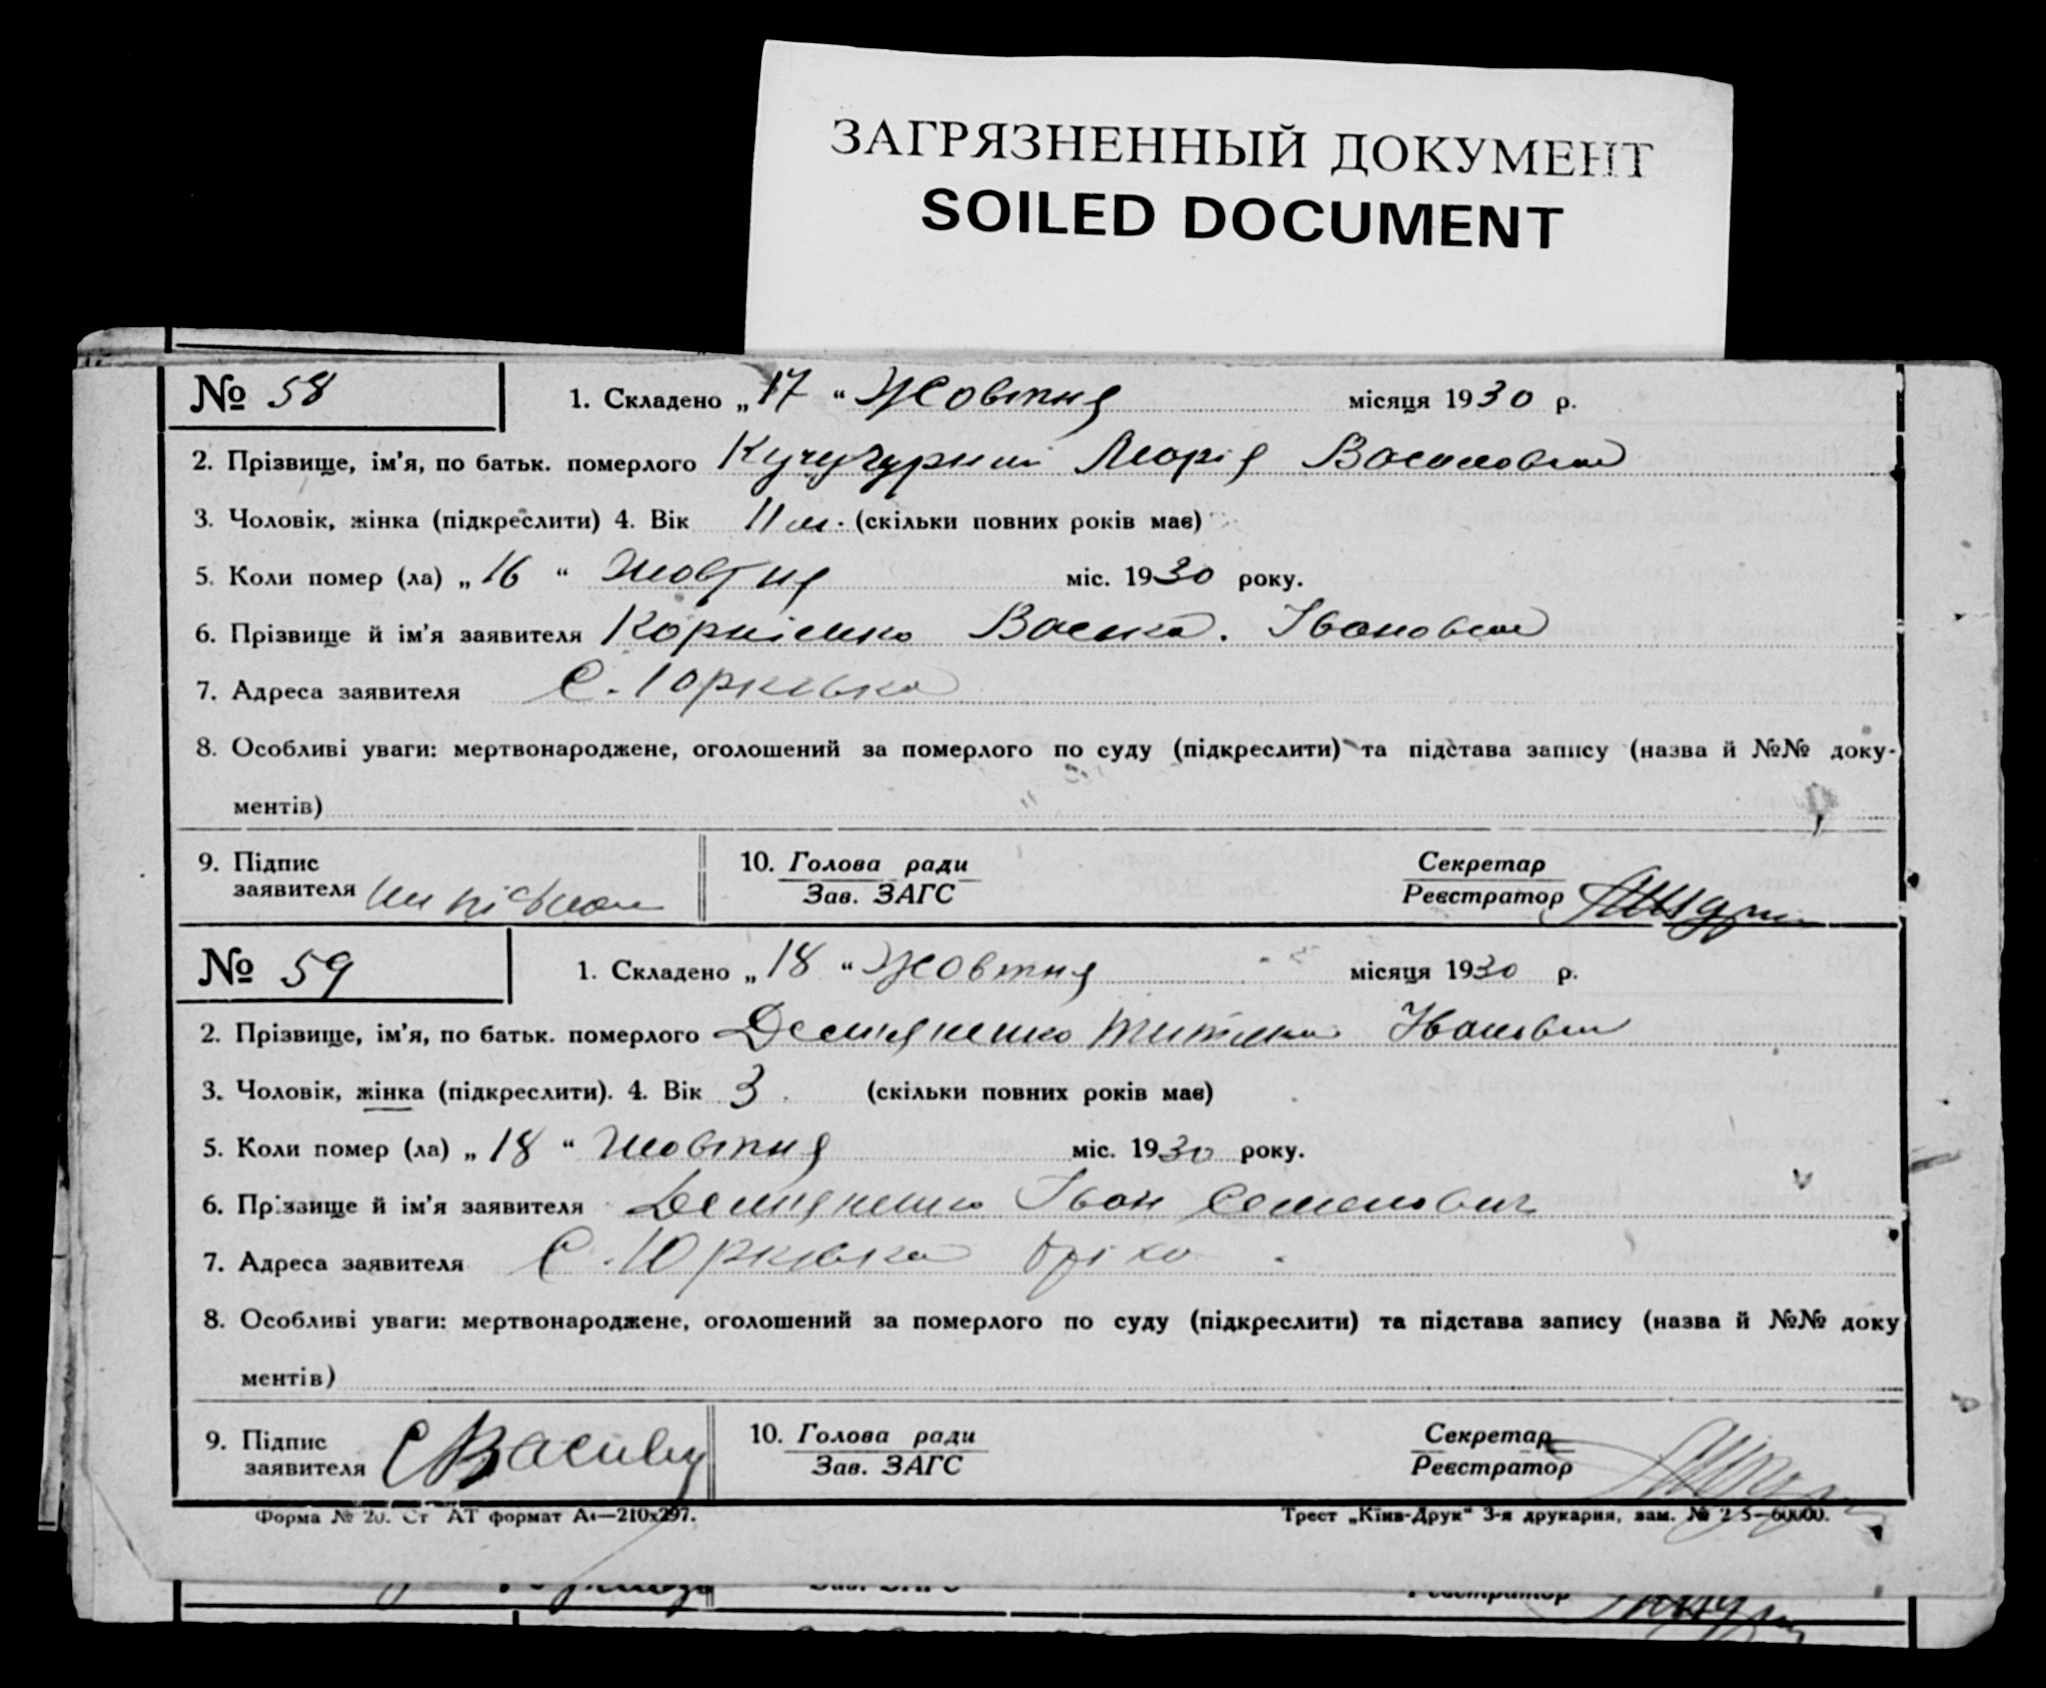 ЗАГРЯЗНЕННЫЙ ДОКУМЕНТ
SOILED DOCUMENT
№ 58 1. Складено „17“ Жовтня місяця 1930 р.
2. Прізвище, ім'я, по батьк. померлого Марія
3. Чоловік, жінка (підкреслити) 4. Вік 11 м. (скільки повних років має)
5. Коли помер (ла) „16“ жовтня міс. 1930 року.
6. Прізвище й ім'я заявителя Корнієнко
7. Адреса заявителя С. Юрківка
8. Особливі уваги: мертвонароджене, оголошений за померлого по суду (підкреслити) та підстава запису (назва й №№ доку-
ментів)
9. Підпис
заявителя
10. Голова ради
Зав. ЗАГС
Секретар
Реєстратор
№ 59 1. Складено „18“ Жовтня місяця 1930 р.
2. Прізвище, ім'я, по батьк. померлого Демяненко
3. Чоловік, жінка (підкреслити). 4. Вік 3 (скільки повних років має)
5. Коли помер (ла) „18“ жовтня міс. 1930 року.
6. Прізвище й ім'я заявителя Демяненко Іван Семенович
7. Адреса заявителя С. Юрківка
8. Особливі уваги: мертвонароджене, оголошений за померлого по суду (підкреслити) та підстава запису (назва й №№ доку
ментів)
9. Підпис
заявителя
10. Голова ради
Зав. ЗАГС
Секретар
Реєстратор
Форма № 20. Ст АТ формат А4—210х297.
Трест „Київ-Друк“ 3-я друкарня, зам. №